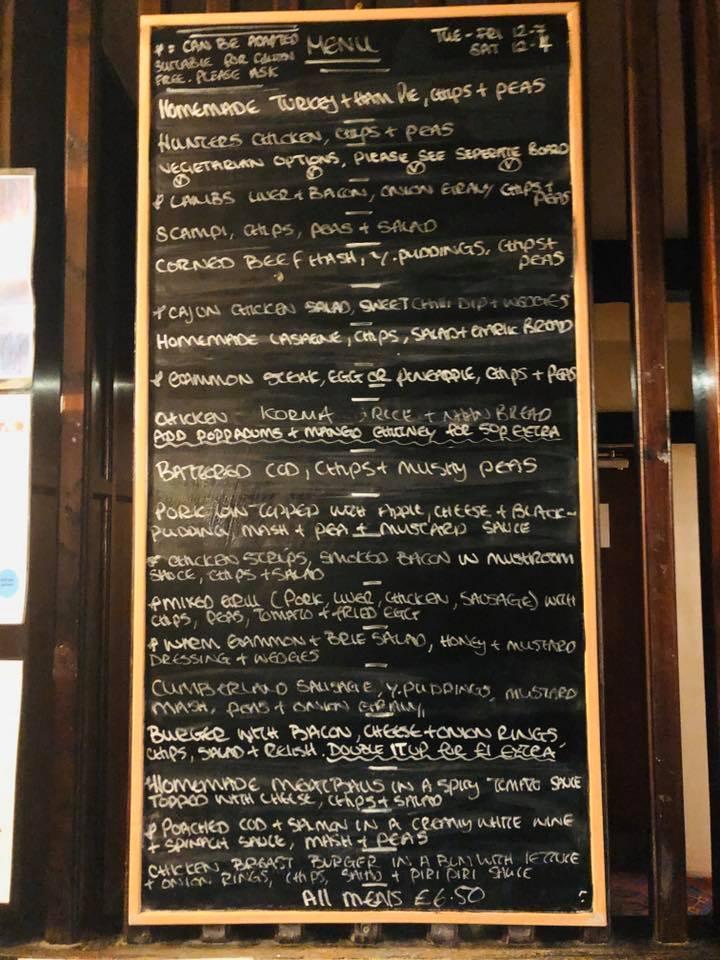 * = CAN BE ADAPTED
SUITABLE FOR GLUTEN
FREE. PLEASE ASK
MENU
TUE - FRI 12-7
SAT 12-4
HOMEMADE TURKEY + HAM PIE, CHIPS + PEAS
HUNTERS CHICKEN, CHIPS + PEAS
VEGETARIAN OPTIONS, PLEASE SEE SEPERATE BOARD
V V V
* LAMBS LIVER + BACON, ONION GRAVY CHIPS +
PEAS
SCAMPI, CHIPS, PEAS + SALAD
CORNED BEEF HASH, Y. PUDDINGS, CHIPS +
PEAS
* CAJUN CHICKEN SALAD, SWEET CHILLI DIP + WEDGES
HOMEMADE LASAGNE, CHIPS, SALAD + GARLIC BREAD
* GAMMON STEAK, EGG OR PINEAPPLE, CHIPS + PEAS
CHICKEN KORMA RICE + NAAN BREAD
ADD POPPADUMS + MANGO CHUTNEY FOR 50P EXTRA
BATTERED COD, CHIPS + MUSHY PEAS
PORK LOIN TOPPED WITH APPLE, CHEESE + BLACK-
PUDDING MASH + PEA + MUSTARD SAUCE
* CHICKEN STRIPS, SMOKED BACON IN MUSHROOM
SAUCE, CHIPS + SALAD
* MIXED GRILL (PORK, LIVER, CHICKEN, SAUSAGE) WITH
CHIPS, PEAS, TOMATO + FRIED EGG
* WARM GAMMON + BRIE SALAD, HONEY + MUSTARD
DRESSING + WEDGES
CUMBERLAND SAUSAGE, Y. PUDDINGS, MUSTARD
MASH, PEAS + ONION GRAVY
BURGER WITH BACON, CHEESE + ONION RINGS
CHIPS, SALAD + RELISH. DOUBLE IT UP FOR £1 EXTRA
* HOMEMADE MEATBALLS IN A SPICY TOMATO SAUCE
TOPPED WITH CHEESE, CHIPS + SALAD
* POACHED COD + SALMON IN A CREAMY WHITE WINE
+ SPINACH SAUCE, MASH + PEAS
CHICKEN BREAST BURGER IN A BUN WITH LETTUCE
+ ONION RINGS, CHIPS, SALAD + PIRI PIRI SAUCE
All MEALS £6.50